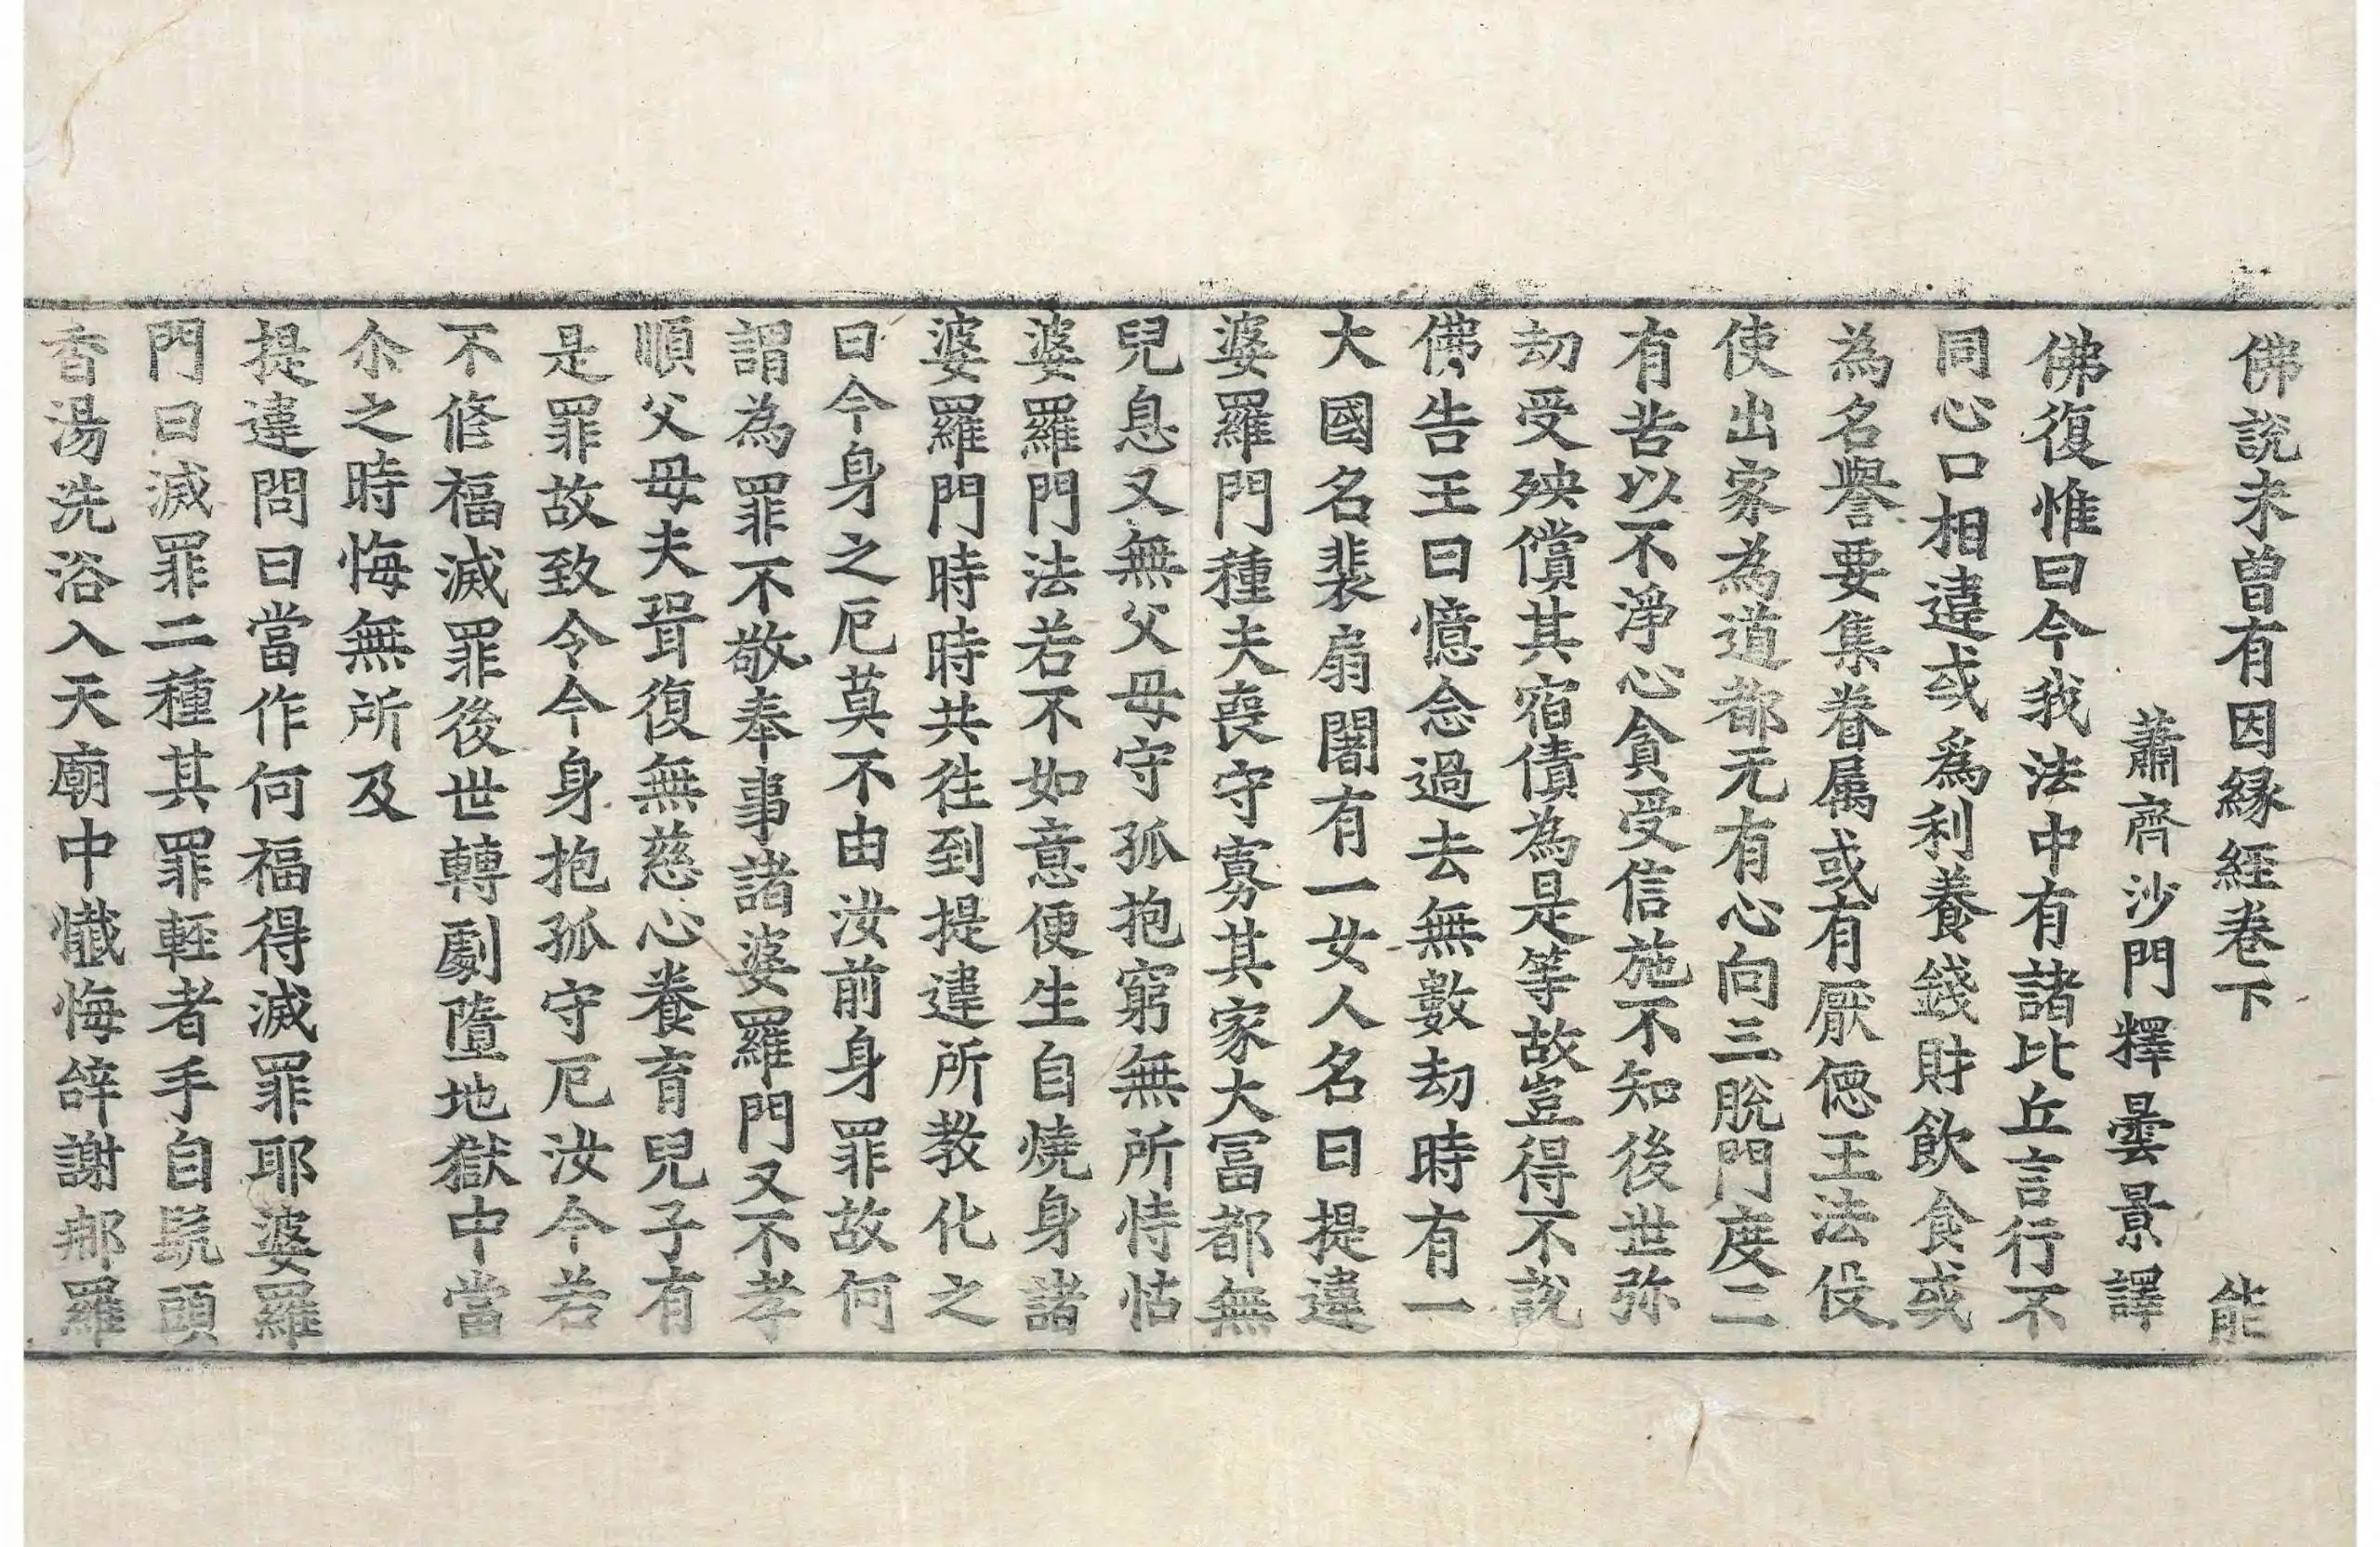 佛說未曾有因縁經卷下 能
蕭齊沙門釋曇景譯
佛復惟曰今我法中有諸比丘言行不
同心口相違或爲利養錢財飲食或
為名譽要集眷属或有厭㥁王法伇
使出家為道都无有心向三脫門度二
有苦以不淨心貪受信施不知後世弥
劫受殃償其宿債為是等故豈得不說
佛告王曰憶念過去無數劫時有一
大國名裴扇闍有一女人名曰提違
婆羅門種夫喪守寡其家大冨都無
兒息又無父母守孤抱窮無所恃怙
婆羅門法若不如意便生自燒身諸
婆羅門時時共徃到提違所教化之
曰今身之厄莫不由汝前身罪故何
謂為罪不敬奉事諸婆羅門又不孝
順父母夫壻復無慈心養育兒子有
是罪故致令今身抱孤守厄汝今若
不修福滅罪後世轉劇墮地獄中當
尒之時悔無所及
提違問曰當作何福得滅罪耶婆羅
門曰滅罪二種其罪輕者手自髠頭
香湯洗浴入天廟中懺悔辝謝郍羅